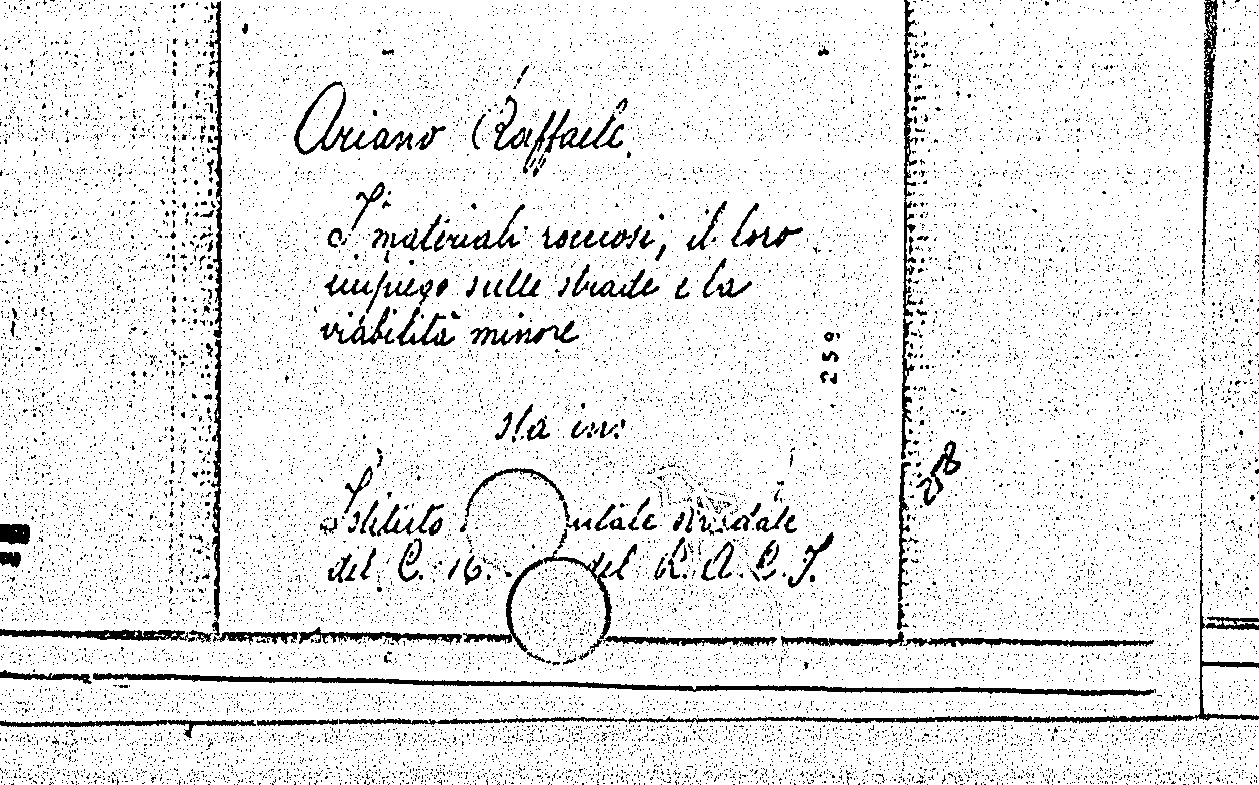 Ariano Raffaele.
I materiali rocciosi, il loro
impiego sulle strade e la
viabilità minore
259
sta in:
258
Istituto stradale
del C. del R.A.C.I.